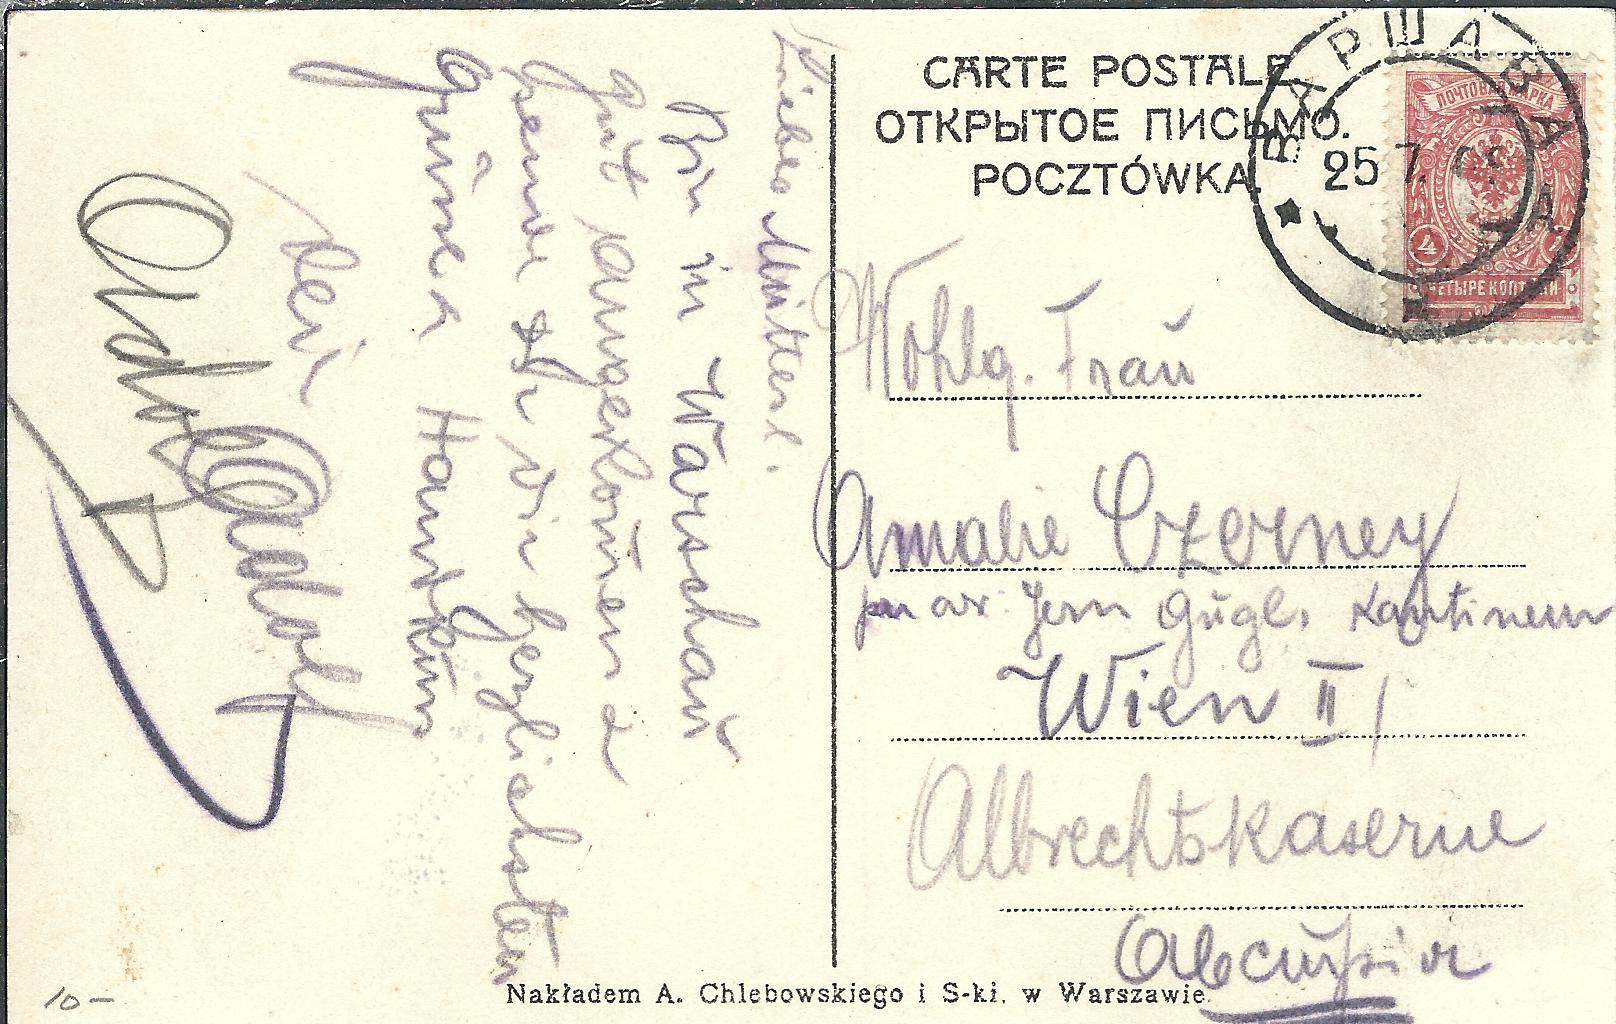 CARTE POSTALE
ОТКРЫТОЕ ПИСЬМО.
POCZTÓWKA.
ВАРШАВА
25 7.
ПОЧТОВАЯ МАРКА
4
ЧЕТЫРЕ КОПѢЙКИ
Liebes Mütterl.
Bin in Warschau
gut angekom̄en u
sende dir die herzlichsten
Grüsse u Handküsse
dein
Adolf
Adolf
Wohlg. Frau
Amalie Czerney
Gugl. Kantineur
Wien II/
Albrechtskaserne
Nakładem A. Chlebowskiego i S-ki. w Warszawie
10-